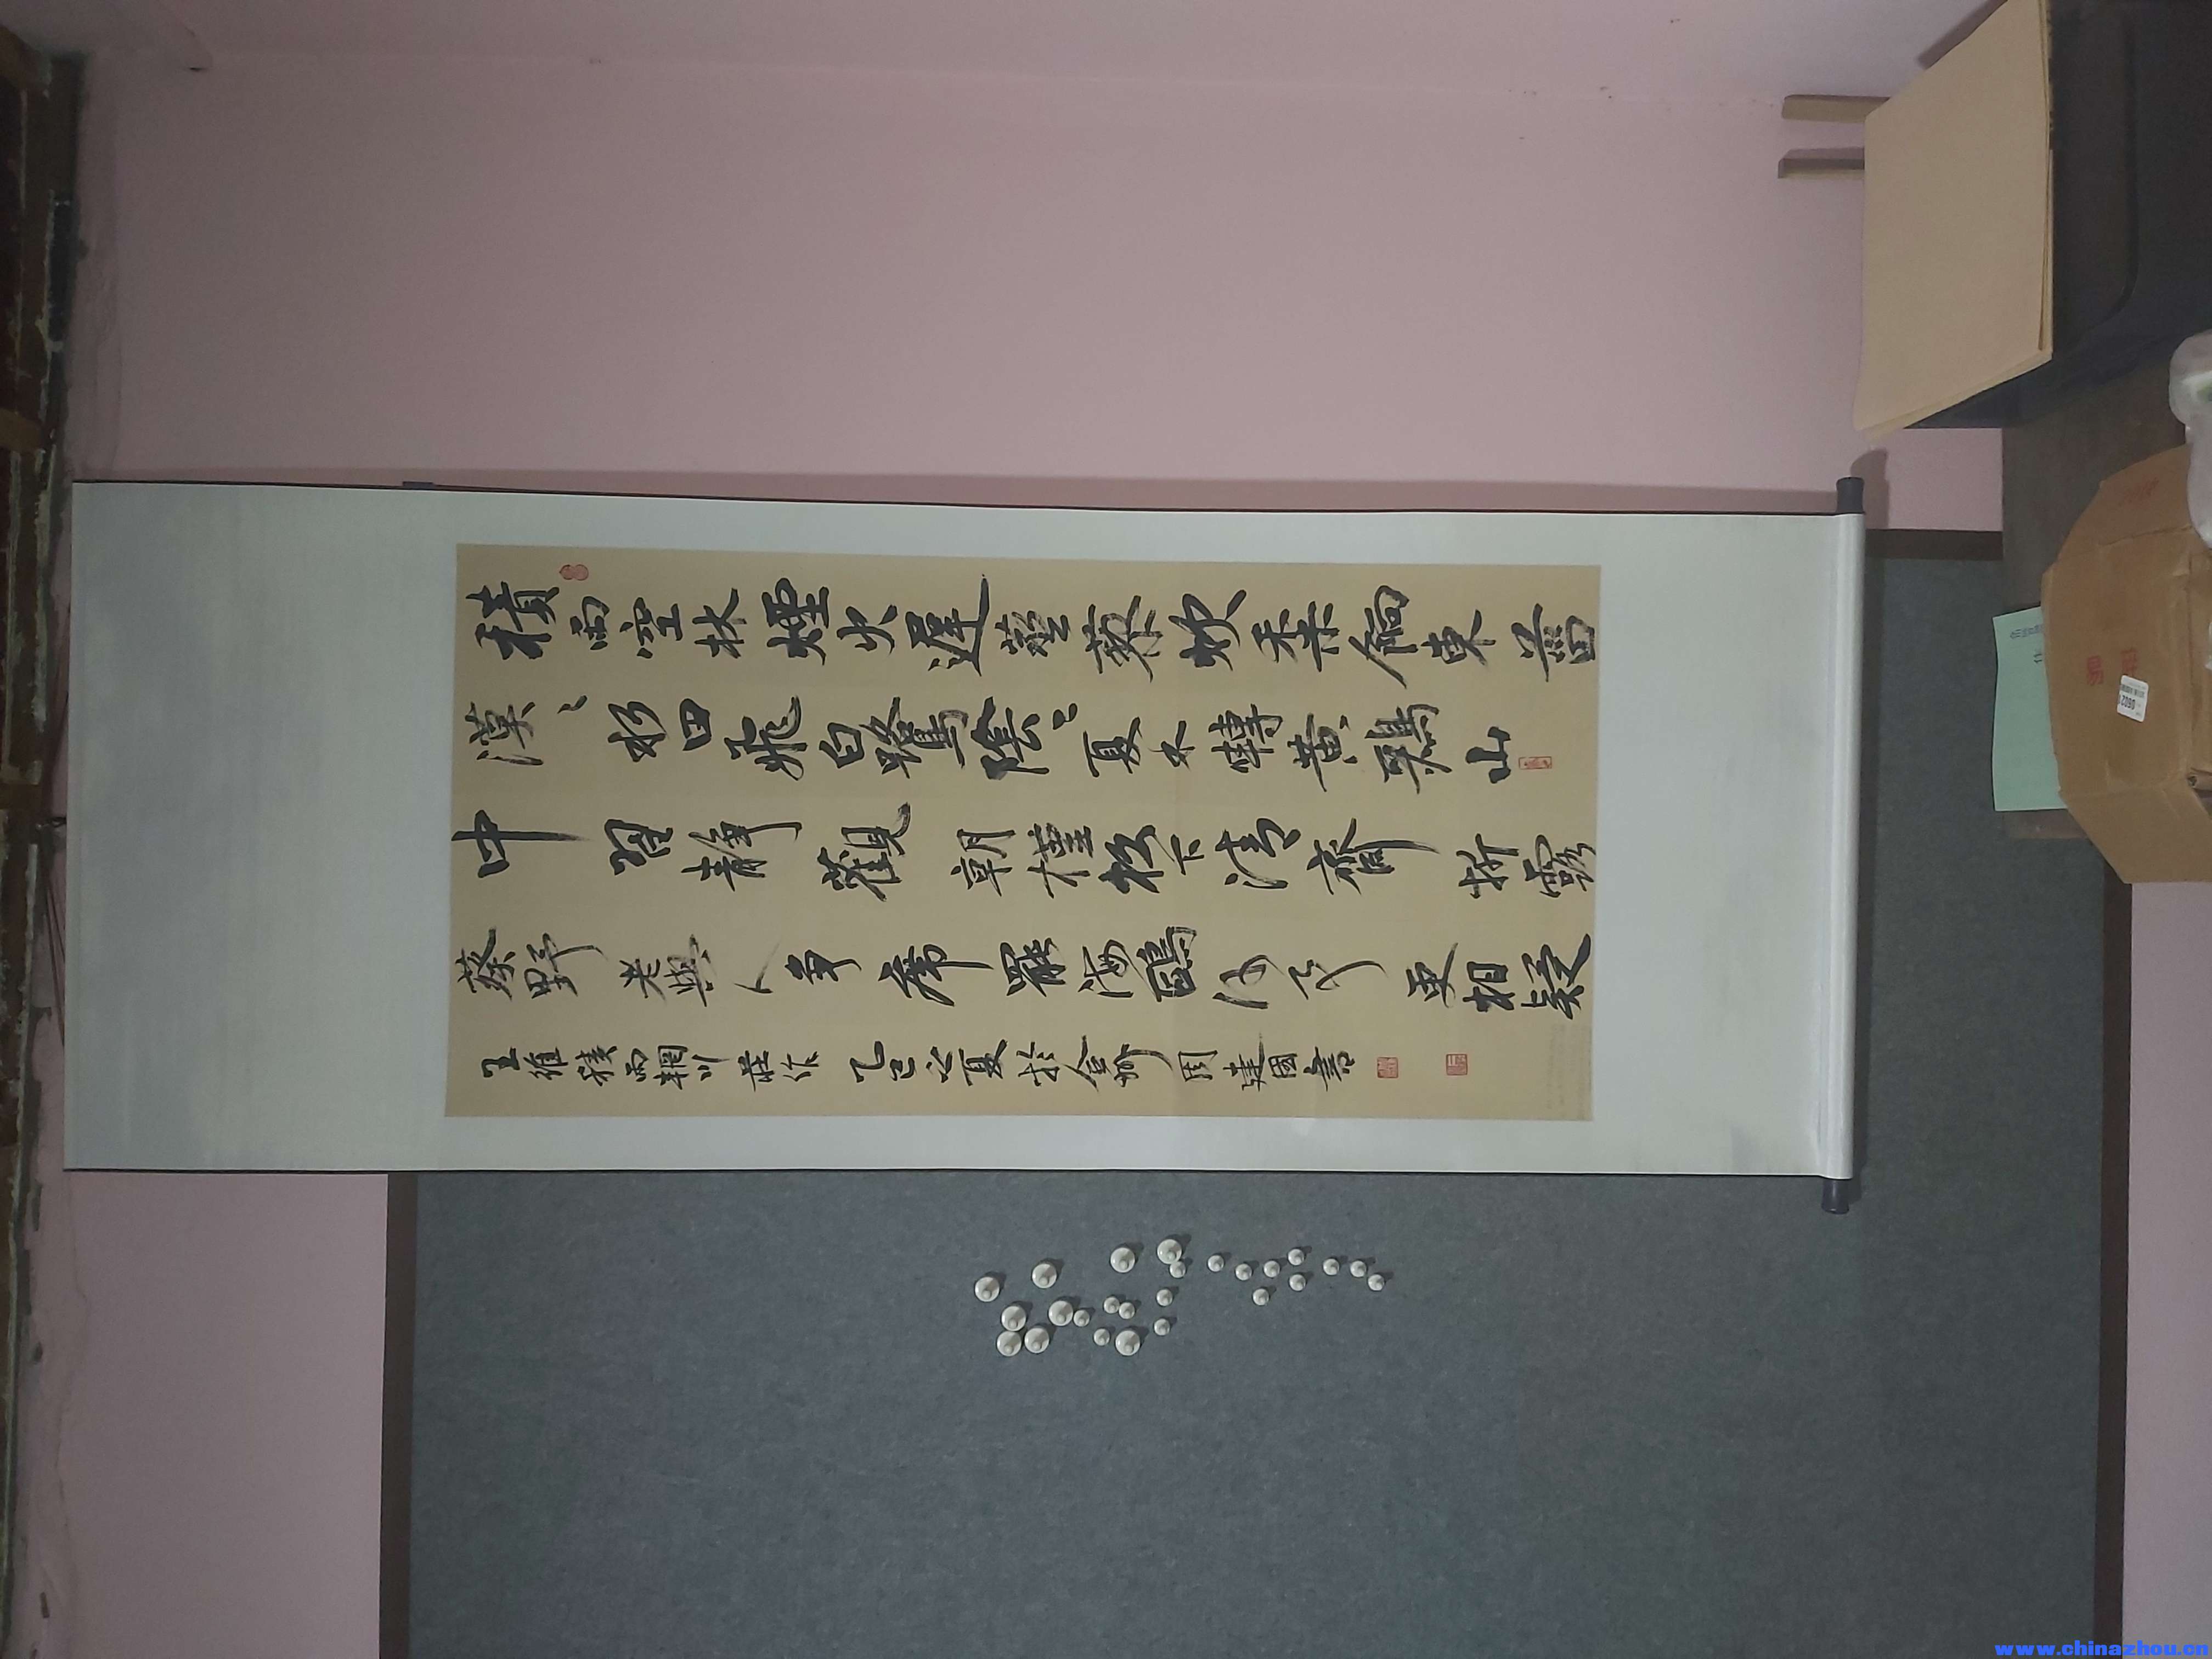 積雨空林煙火遲蒸藜炊黍餉東菑
漠〻水田飛白鷺陰〻夏木囀黃鸝山
中習靜觀朝槿松下清齋折露
葵野老與人爭席罷海鷗何事更相疑
王維積雨輞川莊作 乙巳之夏於金州周建國書
www.chinazhou.cn